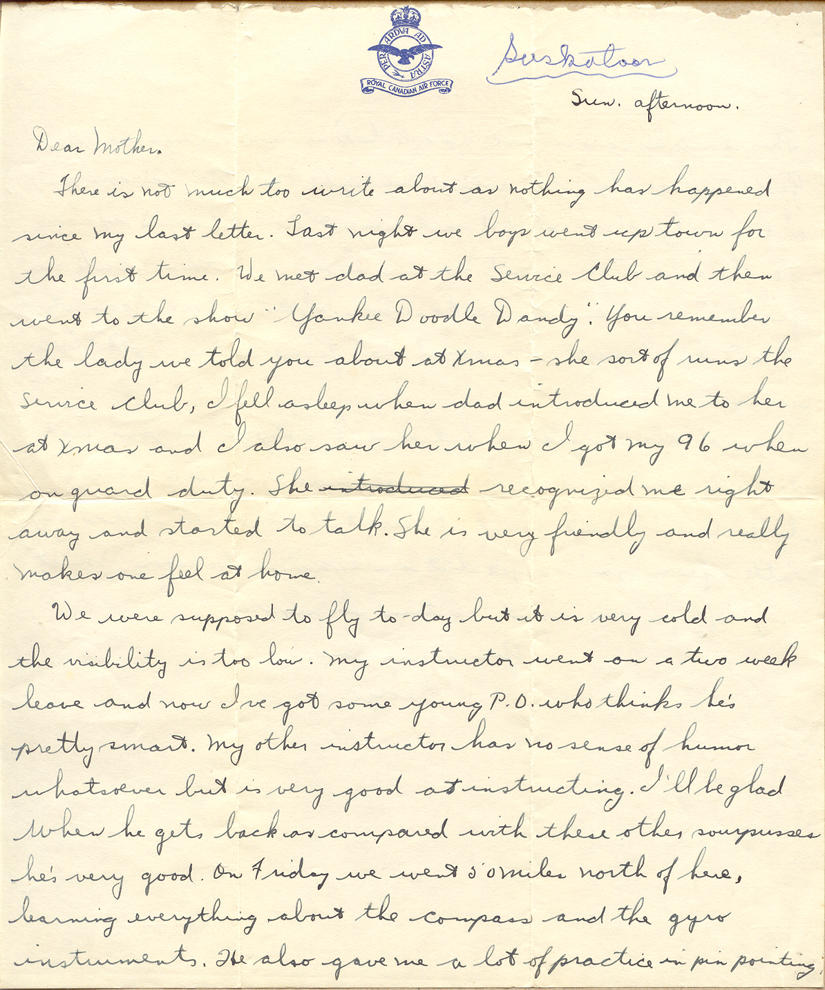 PER ARDUA AD ASTRA
ROYAL CANADIAN AIR FORCE
Saskatoon
Sun. afternoon.
Dear Mother.
There is not much too write about as nothing has happened
since my last letter. Last night we boys went up town for
the first time. We met dad at the Service Club and then
went to the show "Yankee Doodle Dandy". You remember
the lady we told you about at Xmas - she sort of runs the
Service Club, I fell asleep when dad introduced me to her
at Xmas and I also saw her when I got my 96 when
on guard duty. She introduced recognized me right
away and started to talk. She is very friendly and really
makes one feel at home.
We were supposed to fly to-day but it is very cold and
the visibility is too low. My instructor went on a two week
leave and now I've got some young P.O. who thinks he's
pretty smart. My other instructor has no sense of humor
whatsoever but is very good at instructing. I'll be glad
when he gets back as compared with these other sourpusses
he's very good. On Friday we went 50 miles north of here,
learning everything about the compass and the gyro
instruments. He also gave me a lot of practice in pin pointing,